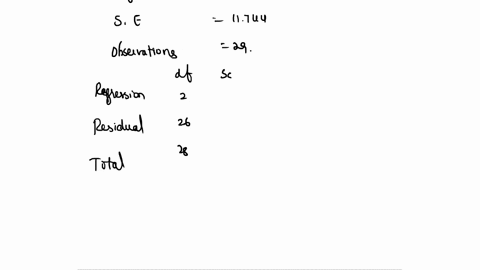 S. E = 11.744
Observations = 29.
df
Regression 2
Residual 26
Total 28